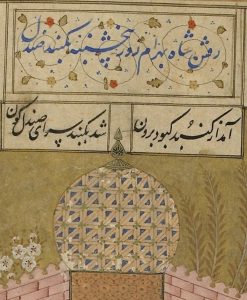 رفتن شاه بهرام روز پنجشنبه بگنبد صندل
آمد از گنبد کبود برون شد بگنبد سرای صندل گون